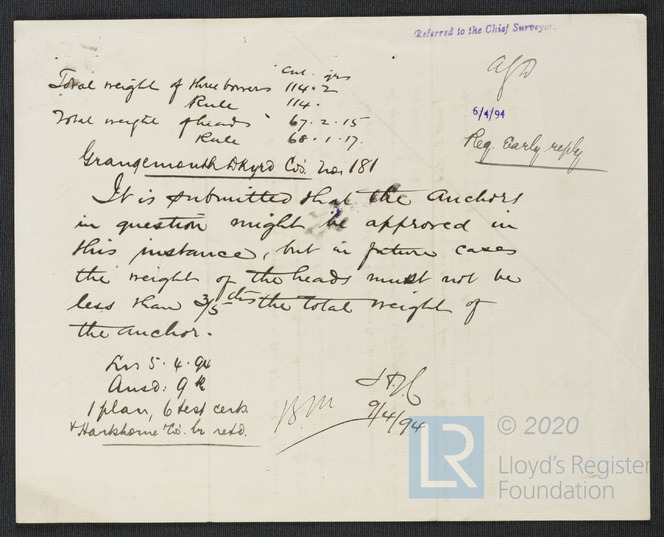 Referred to the Chief Surveyor.
Cwt. qrs
Total weight of three bowers 114.2
Rule 114.
Total weight of heads 67.2.15
Rule 68.1.17.
6/4/94
Req. Early reply
Grangemouth Dkyrd Co's. No. 181
It is submitted that the Anchors
in question might be approved in
this instance, but in future cases
the weight of the heads must not be
less than 3/5ths the total weight of
the anchor.
5.4.94
Ansd: 9th
1 plan, 6 test certs.
Co. lr retd.
9/4/94
LR
© 2020
Lloyd's Register
Foundation